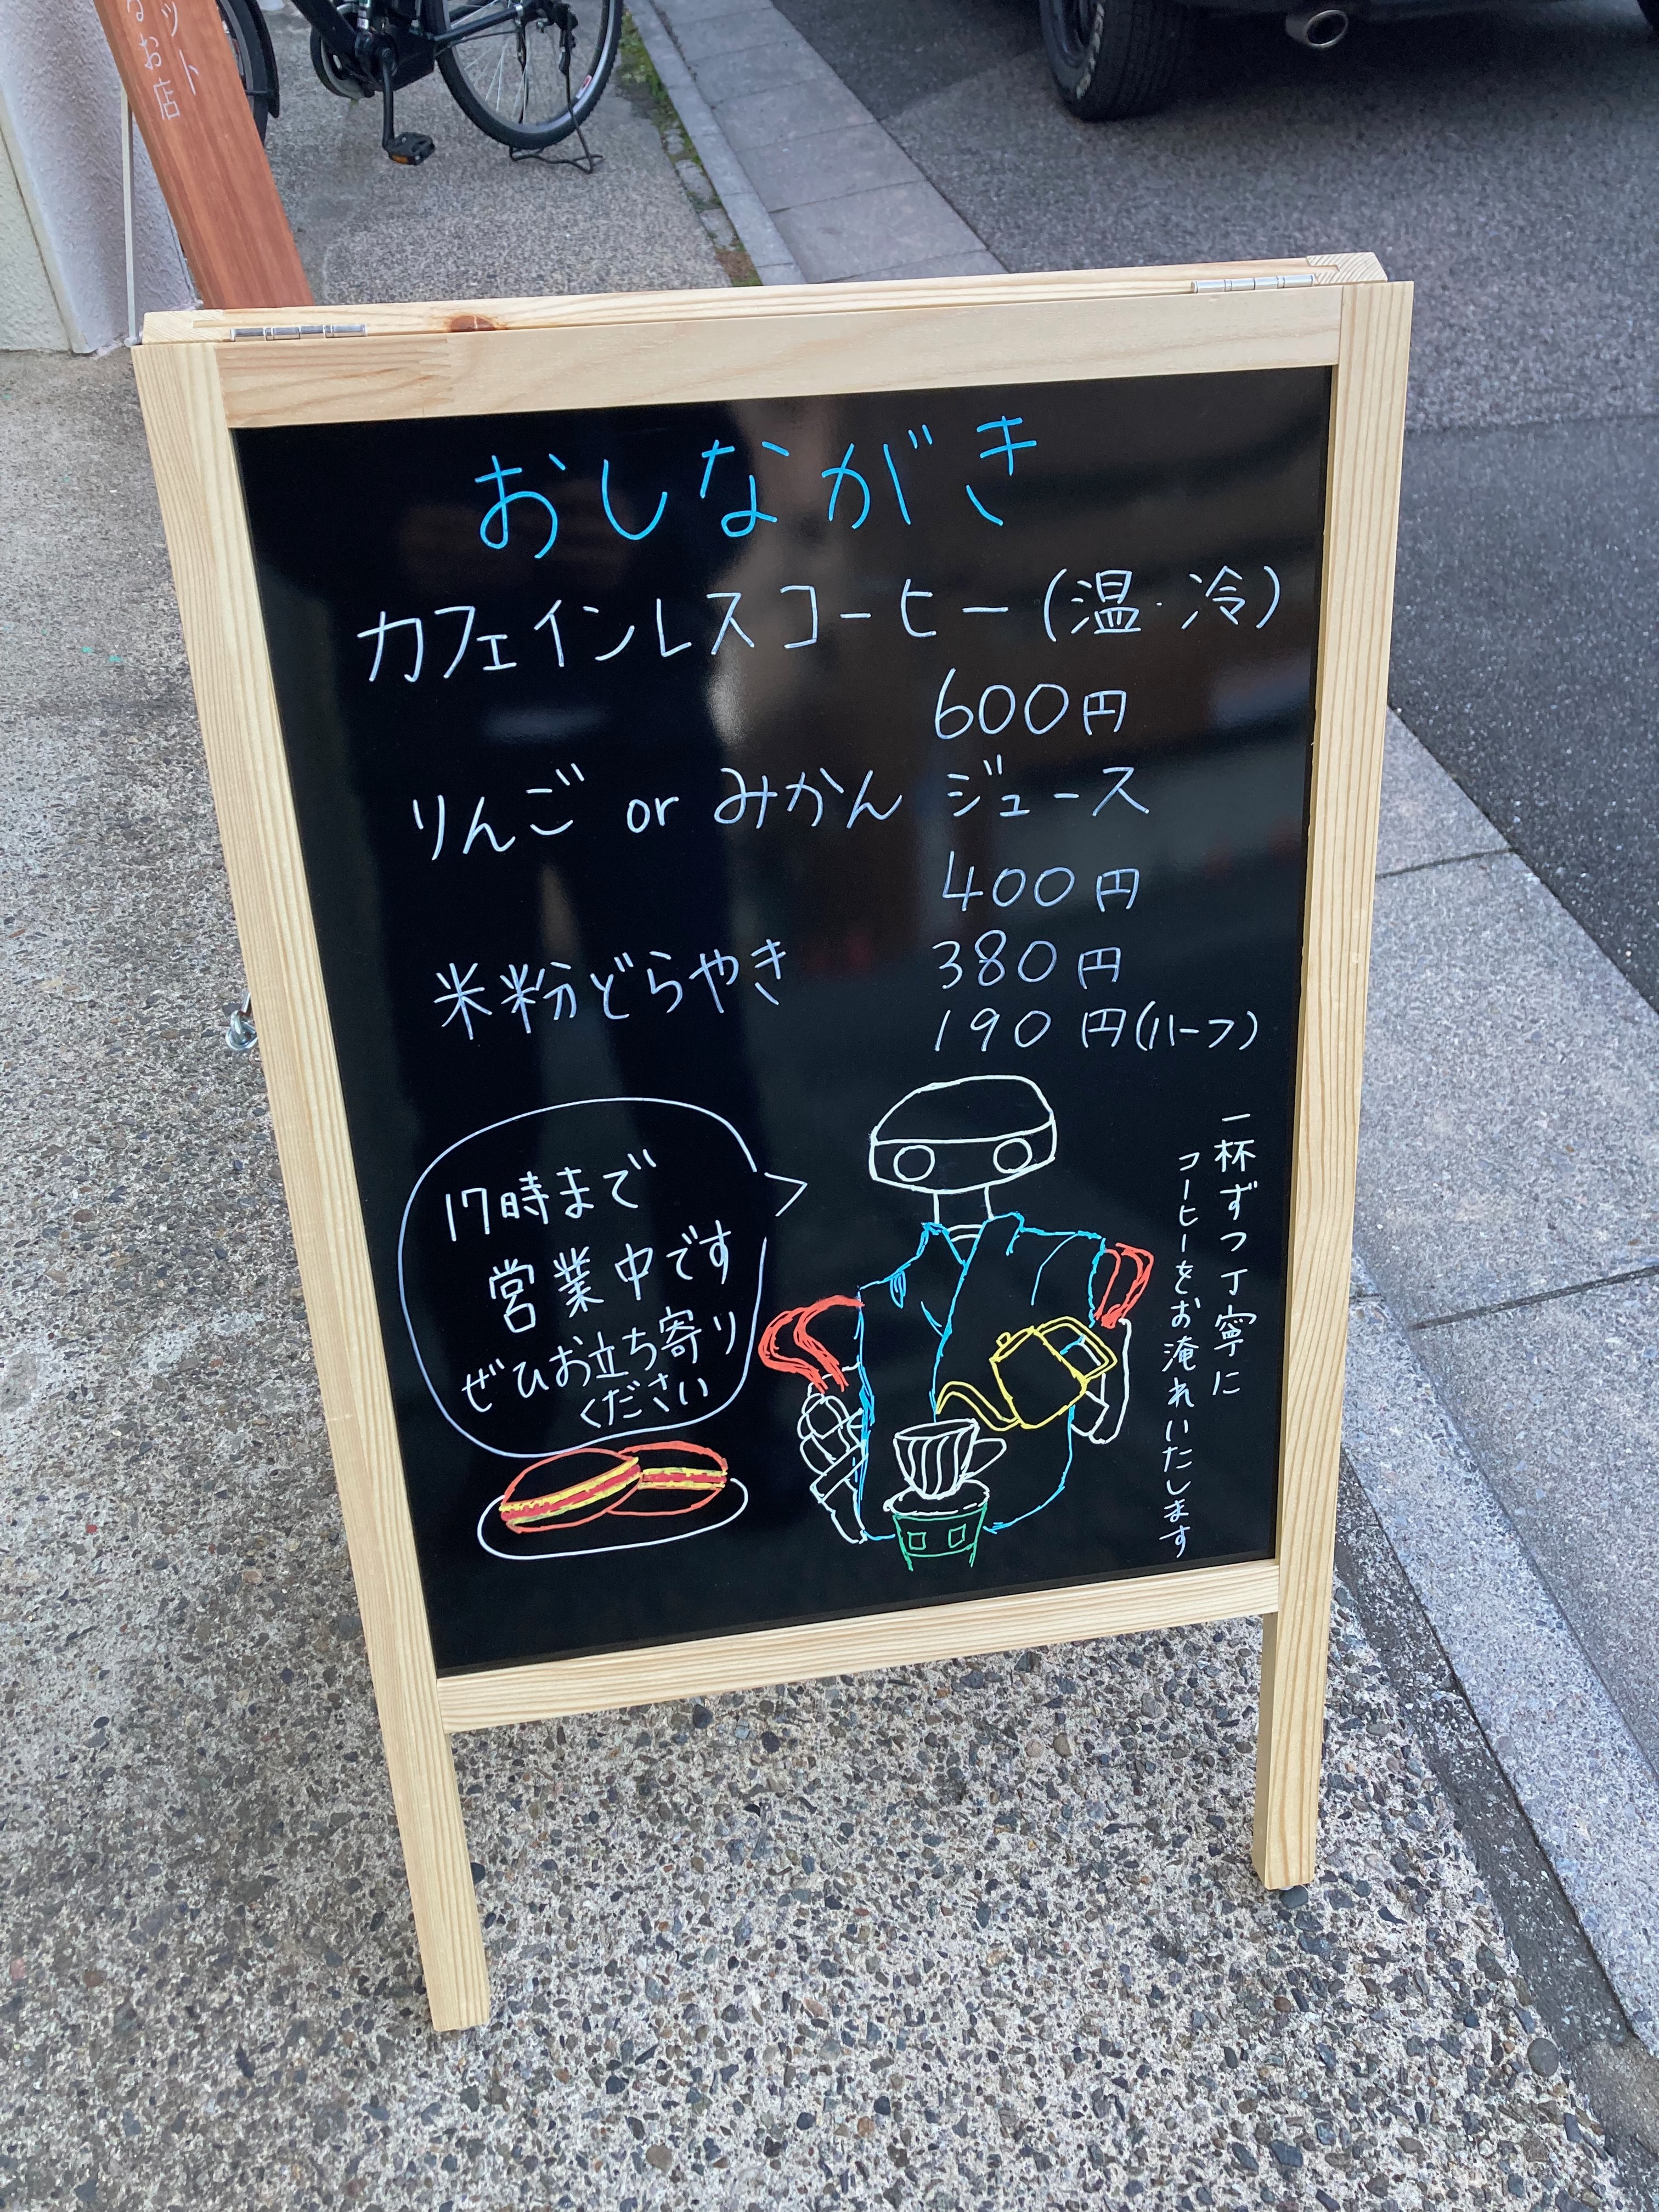 ット
なお店
おしながき
カフェインレスコーヒー(温・冷)
600円
りんご or みかん ジュース
400円
米粉どらやき 380円
190円(ハーフ)
17時まで
営業中です
ぜひお立ち寄り
ください
一杯ずつ丁寧に
コーヒーをお淹れいたします